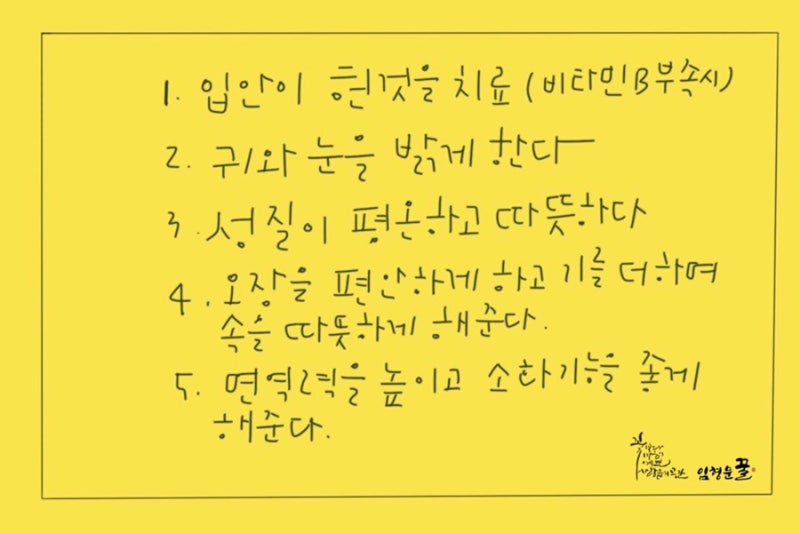 1. 입안이 헌것을 치료 (비타민B 부속시)
2. 귀와 눈을 밝게 한다
3. 성질이 평온하고 따뜻하다
4. 오장을 편안하게 하고 기를 더하며
속을 따뜻하게 해준다.
5. 면역력을 높이고 소화기능을 좋게
해준다.
임형문꿀